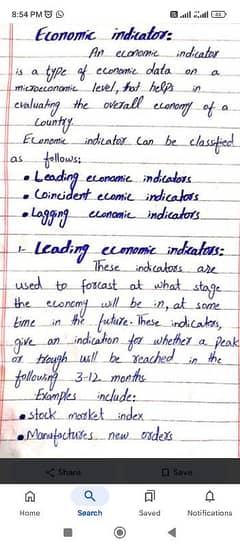 8:54 PM
Economic indicator:
An economic indicator
is a type of economic data on a
microeconomic level, that helps in
evaluating the overall economy of a
country.
Economic indicator can be classified
as follows:
• Leading economic indicators
• Coincident ecomic indicators
• Lagging economic indicators
1- Leading economic indicators:
These indicators are
used to forcast at what stage
the economy will be in, at some
time in the future. These indicators,
give an indication for whether a peak
or trough will be reached in the
following 3-12 months
Examples include:
• stock market index
• Manufactures new orders
Share Save
Home Search Saved Notifications